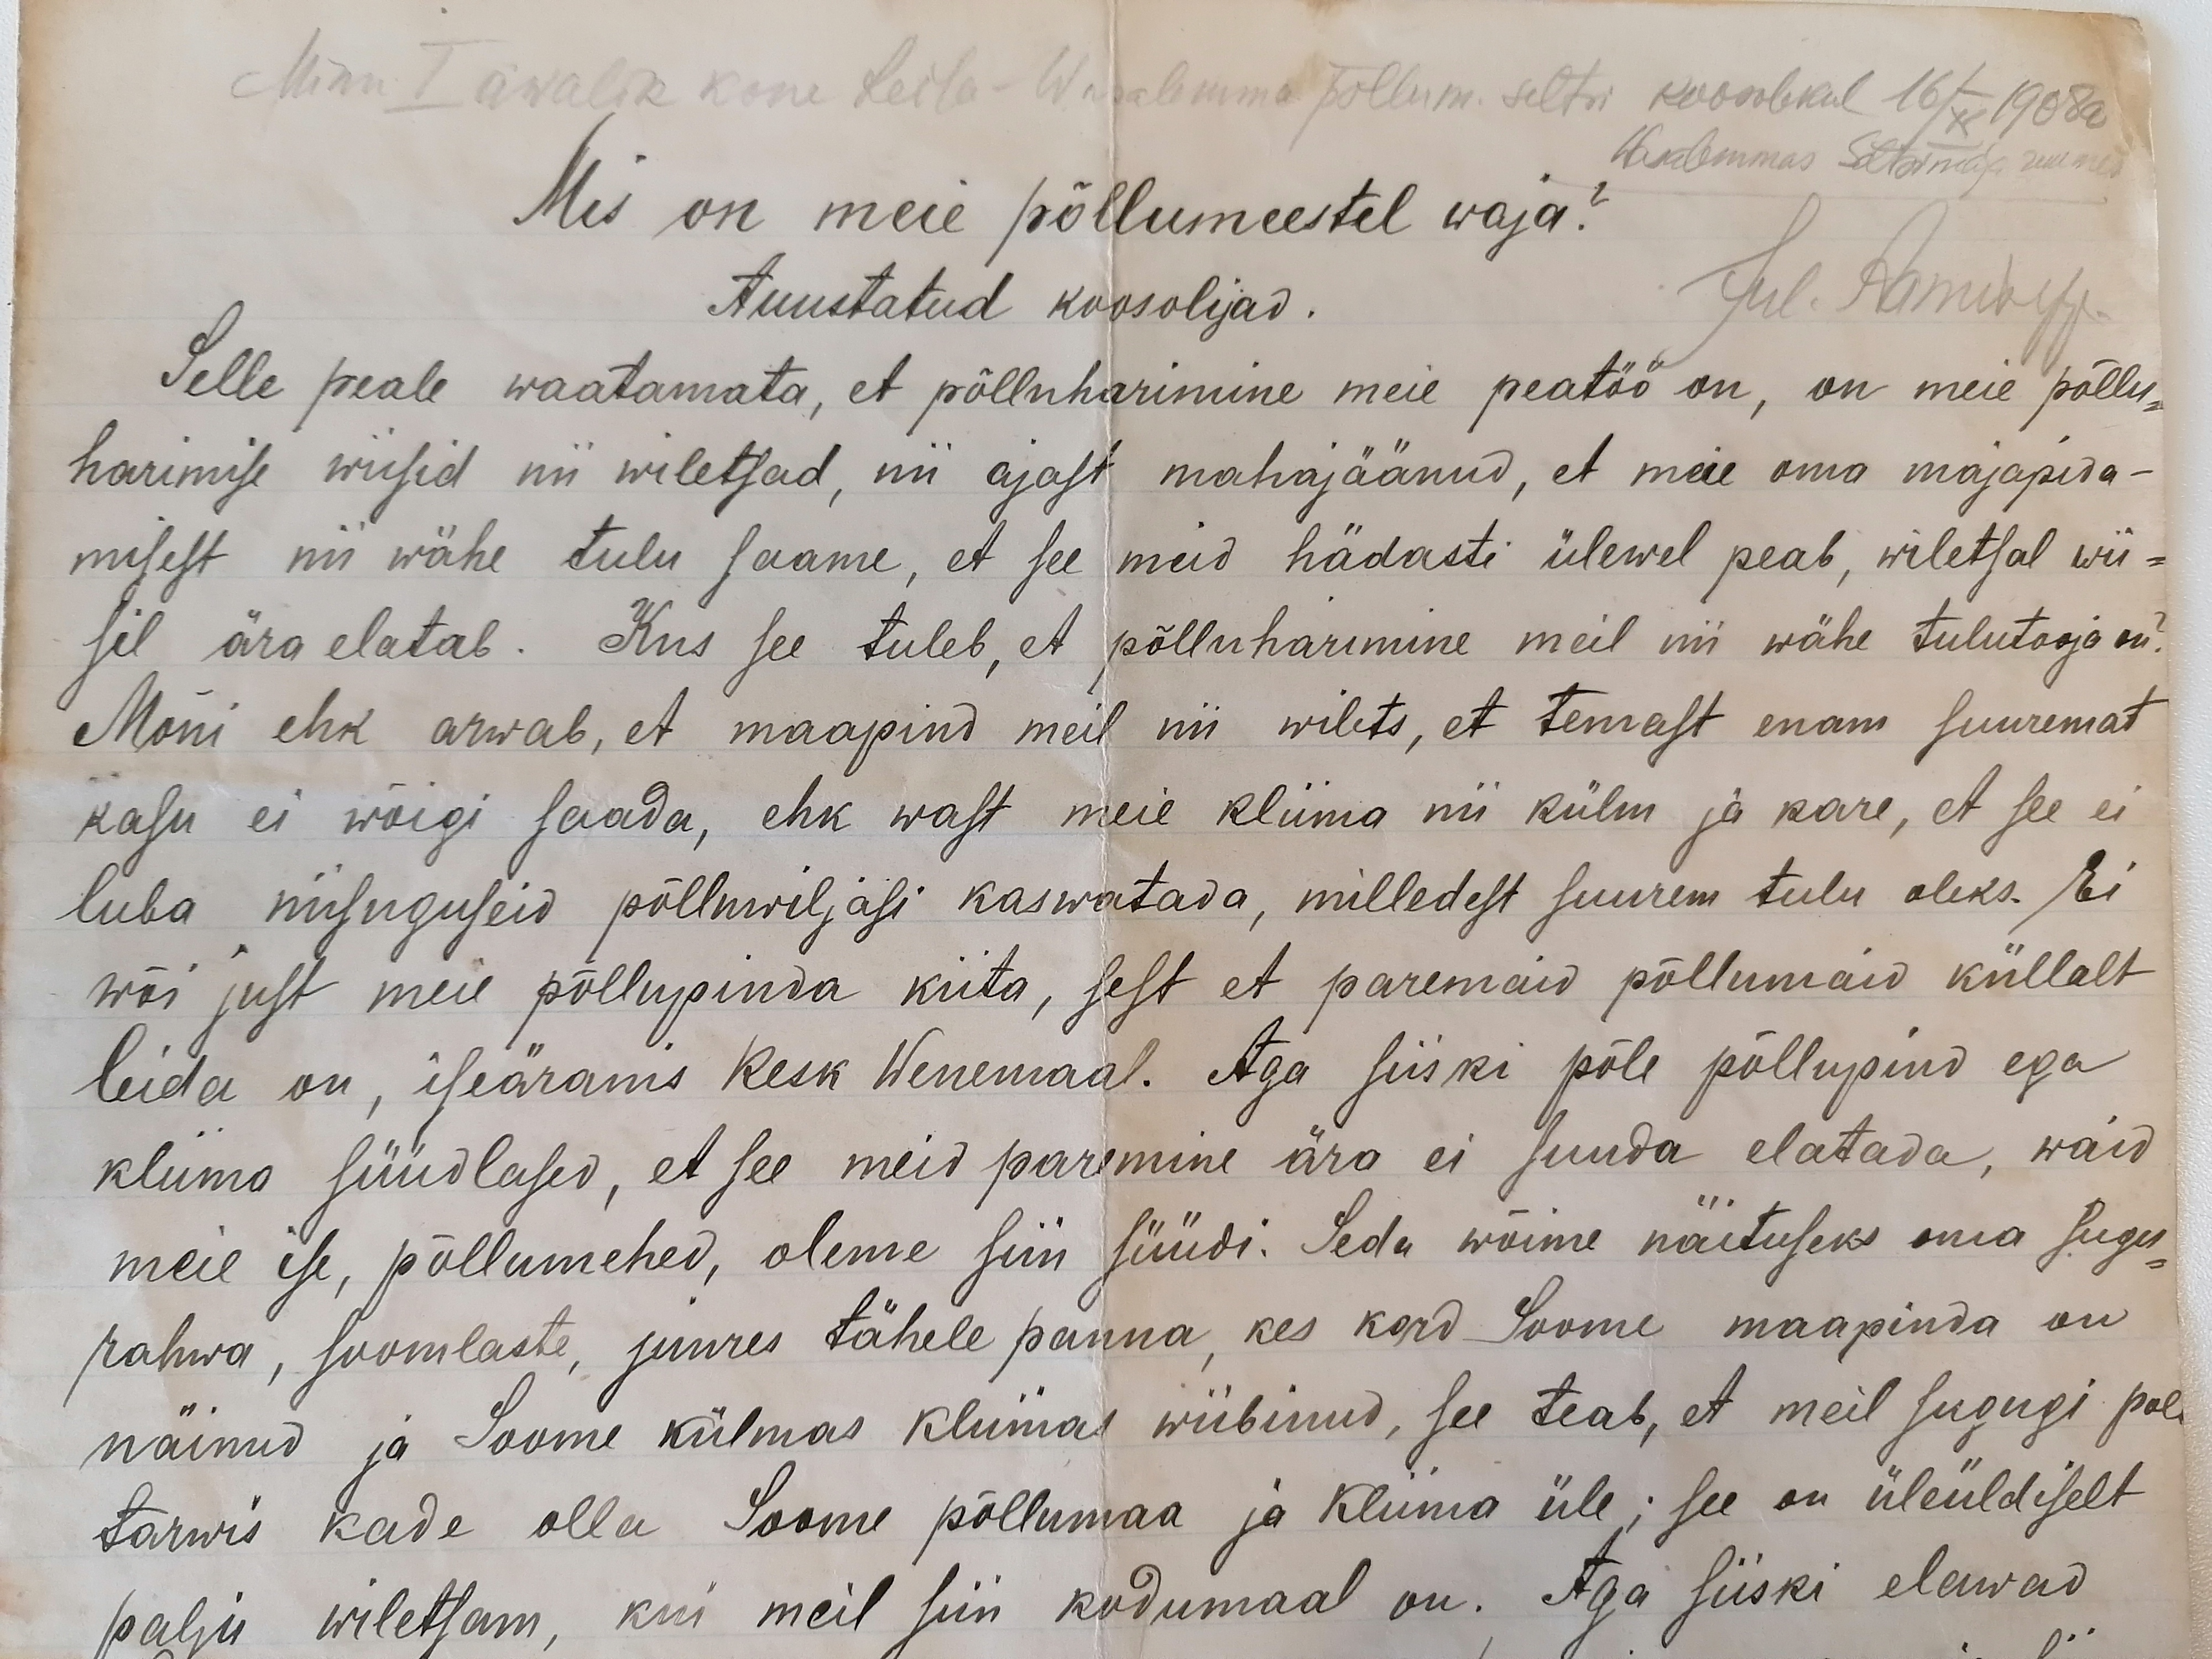 Minu I awalik kone Leisa-Wasalemma põllum. seltsi koosolekul 16/XI 1908a
Wasalemmas Seltsimaja ruumes
Mis on meie põllumeestel waja?
Auustatud koosolijad.
Jul.
Selle peale waatamata, et põlluharimine meie peatöö on, on meie põllu=
harimise wiisid nii wiletsad, nii ajast mahajäänud, et meie oma majapida-
misest nii wähe tulu saame, et see meid hädasti ülewel peab, wiletsal wii=
sil ära elatab. Kus see tuleb, et põlluharimine meil nii wähe tulutooja on?
Mõni ehk arwab, et maapind meil nii wilets, et temast enam suuremat
kasu ei wõigi saada, ehk wast meie kliima nii külm ja kare, et see ei
luba niisuguseid põlluwiljasi kaswatada, milledest suurem tulu oleks. Ei
wõi just meie põllupinda kiita, sest et paremaid põllumaid küllalt
leida on, iseäranis Kesk Wenemaal. Aga siiski põle põllupind ega
kliima süüdlased, et see meid paremine ära ei suuda elatada, waid
meie ise, põllumehed, oleme siin süüdi. Seda wõime näituseks oma sugu=
rahwa, soomlaste, juures tähele panna, kes kord Soome maapinda on
näinud ja Soome külmas kliimas wiibinud, see teab, et meil sugugi pole
tarwis kade olla Soome põllumaa ja kliima üle; see on üleüldiselt
palju wiletsam, kui meil siin kodumaal on. Aga siiski elawad